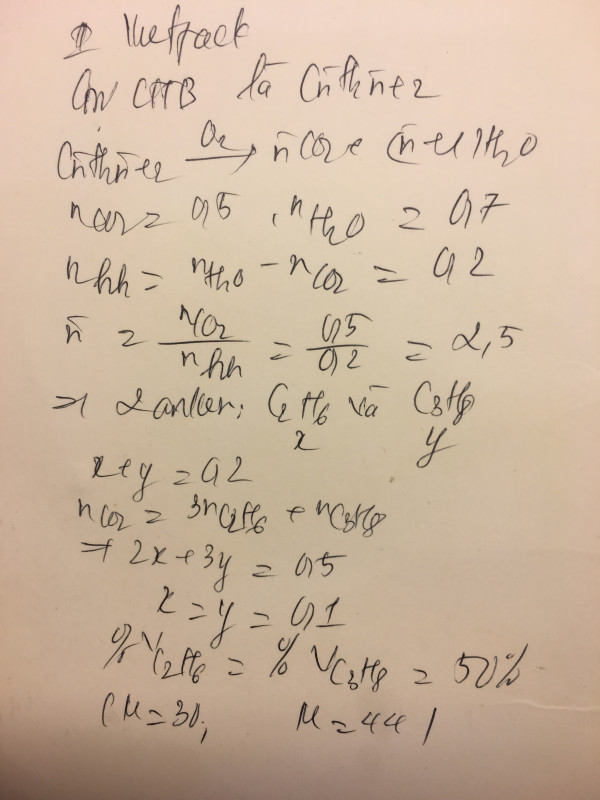 Gọi CTTB là Cn̄H2n̄+2
Cn̄H2n̄+2 O2→ n̄CO2 + (n̄+1)H2O
nCO2 = 0,5 , nH2O = 0,7
nhh = nH2O - nCO2 = 0,2
n̄ = nCO2 / nhh = 0,5 / 0,2 = 2,5
=> 2 ankan: C2H6 và C3H8
x y
x+y = 0,2
nCO2 = 3nC2H6 + nC3H8
=> 2x+3y = 0,5
x = y = 0,1
%VC2H6 = %VC3H8 = 50%
(M=30; M=44)